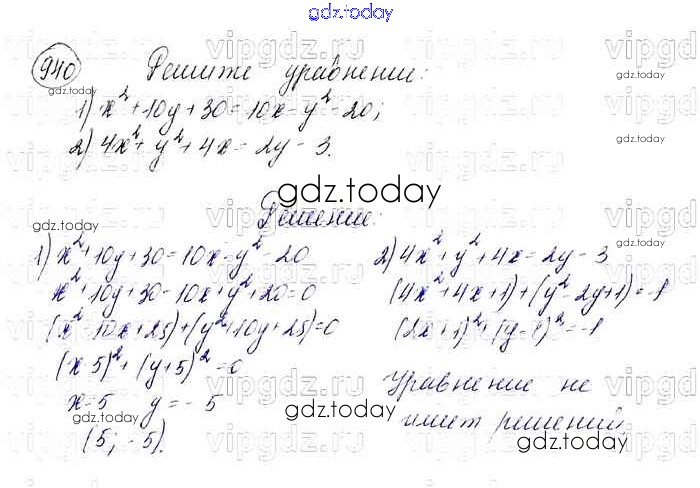 gdz.today
940 Решите уравнение:
1) x² + 10y + 30 = 10x - y² - 20;
2) 4x² + y² + 4x = 2y - 3.
gdz.today
Решение:
1) x² + 10y + 30 = 10x - y² - 20
x² + 10y + 30 - 10x + y² + 20 = 0
(x² - 10x + 25) + (y² + 10y + 25) = 0
(x - 5)² + (y + 5)² = 0
x = 5 y = -5
(5; -5).
2) 4x² + y² + 4x = 2y - 3
(4x² + 4x + 1) + (y² - 2y + 1) = -1
(2x + 1)² + (y - 1)² = -1
Уравнение не
имеет решений
gdz.today
gdz.today
gdz.today
gdz.today
gdz.today
gdz.today
gdz.today
gdz.today
vipgdz.ru